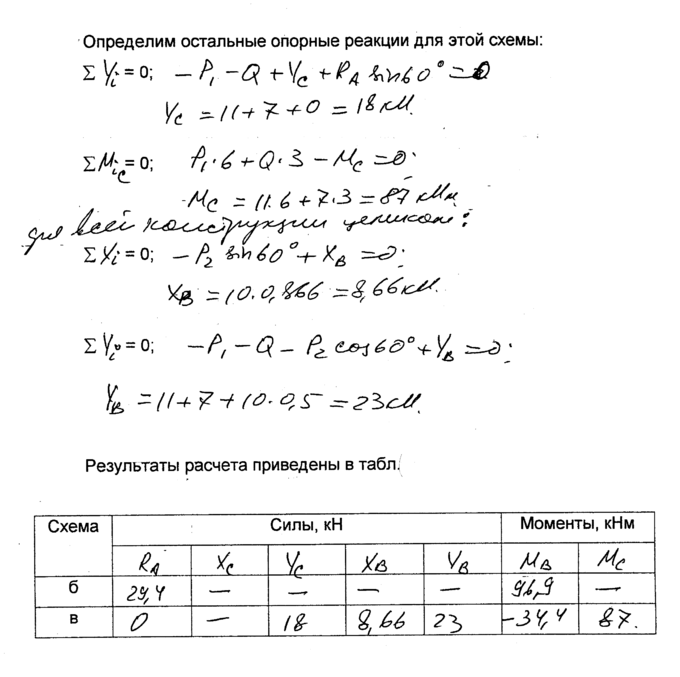 Определим остальные опорные реакции для этой схемы:
Σ Yi = 0; −P₁ − Q + Yc + RA sin60° = 0
Yc = 11 + 7 + 0 = 18 кН.
ΣMic = 0; P₁·6 + Q·3 − Mc = 0;
Mc = 11·6 + 7·3 = 87 кНм.
для всей конструкции целиком:
Σ Xi = 0; −P₂ sin60° + XB = 0;
XB = 10·0,866 = 8,66 кН.
Σ Yi = 0; −P₁ − Q − P₂ cos60° + YB = 0;
YB = 11 + 7 + 10·0,5 = 23 кН.
Результаты расчета приведены в табл.
Схема Силы, кН Моменты, кНм
RA Xc Yc XB YB MB Mc
б 29,4 — — — — 96,9 —
в 0 — 18 8,66 23 −34,4 87.